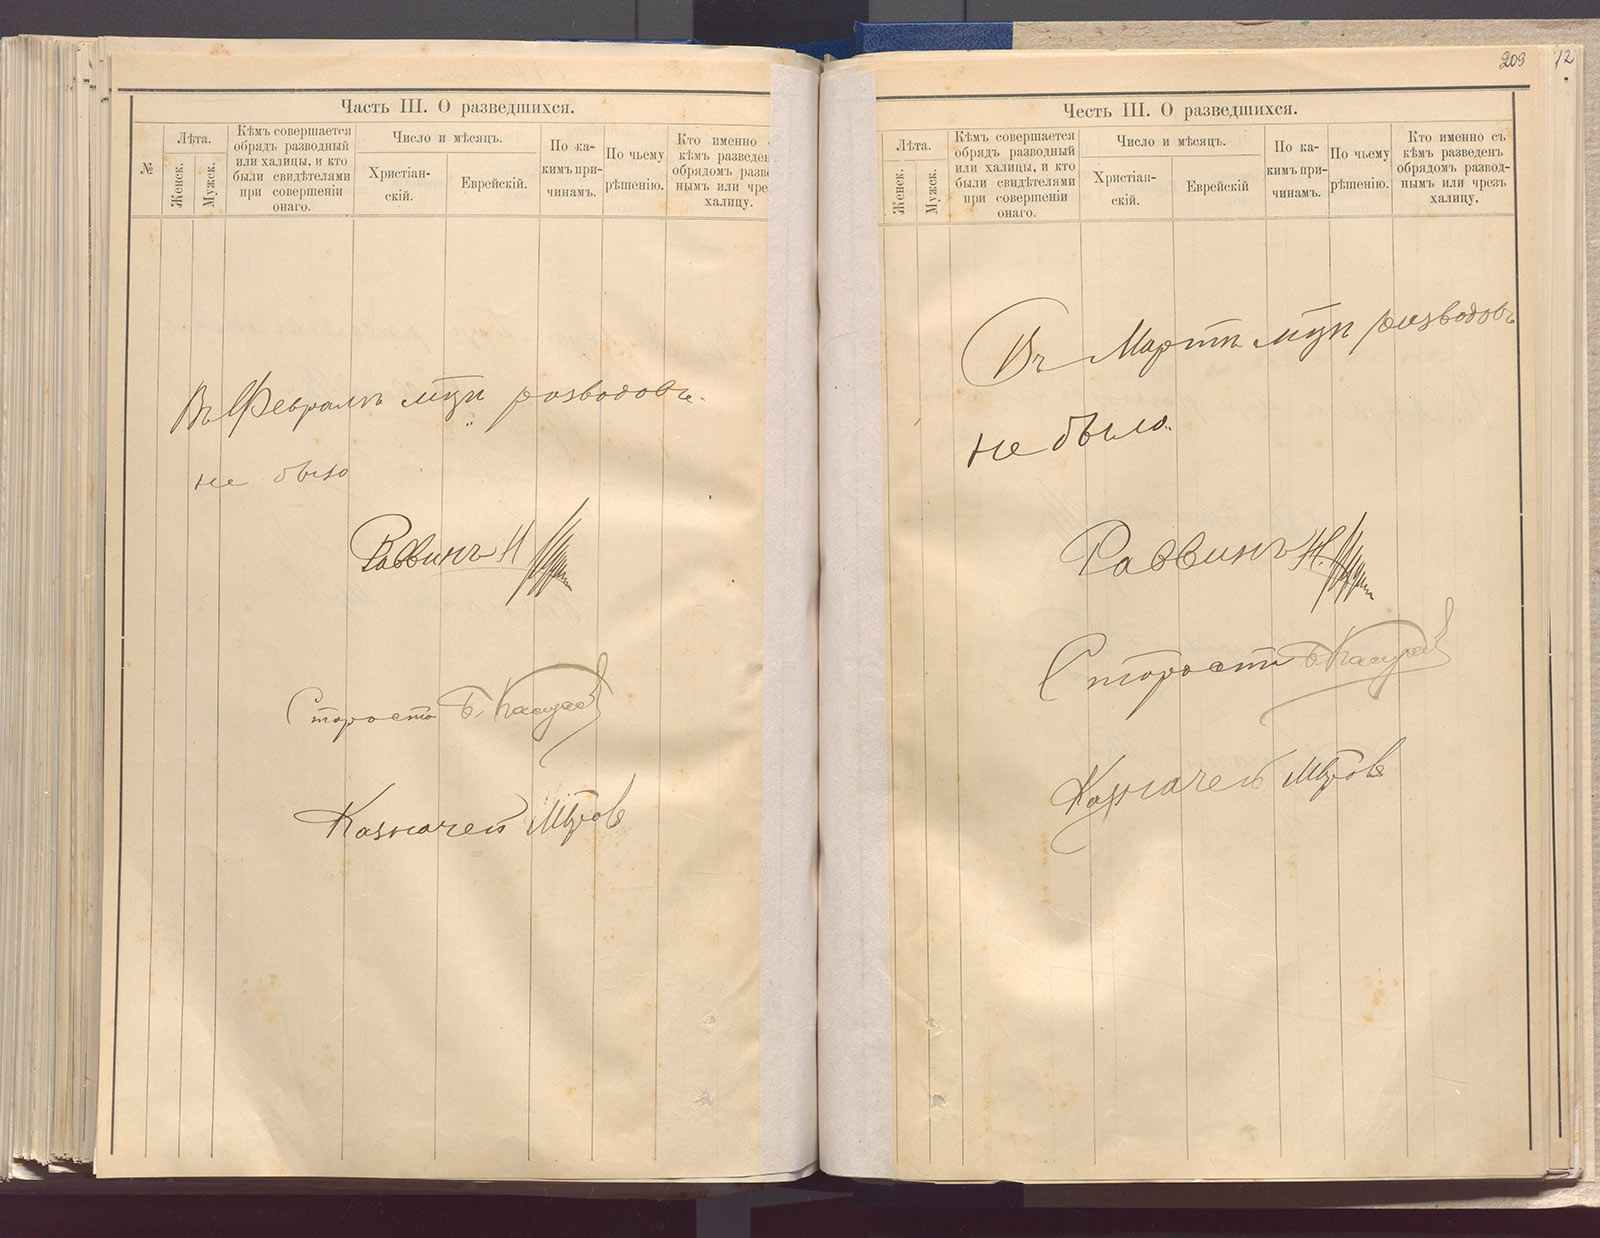 Часть III. О разведшихся.
№
Лѣта.
Женск.
Мужск.
Кѣмъ совершается
обрядъ разводный
или халицы, и кто
были свидѣтелями
при совершеніи
онаго.
Число и мѣсяцъ.
Христіан-
скій.
Еврейскій.
По ка-
кимъ при-
чинамъ.
По чьему
рѣшенію.
Кто именно
кѣмъ разведен
обрядомъ разво
нымъ или чрез
халицу.
Въ Февралѣ мцѣ разводовъ
не было
Раввинъ Н
Староста Б.
Казначей
209
12
Честь III. О разведшихся.
Лѣта.
Женск.
Мужск.
Кѣмъ совершается
обрядъ разводный
или халицы, и кто
были свидѣтелями
при совершеніи
онаго.
Число и мѣсяцъ.
Христіан-
скій.
Еврейскій
По ка-
кимъ при-
чинамъ.
По чьему
рѣшенію.
Кто именно съ
кѣмъ разведенъ
обрядомъ развод-
нымъ или чрезъ
халицу.
Въ Мартѣ мцѣ разводовъ
не было.
Раввинъ Н.
Староста Б.
Казначей